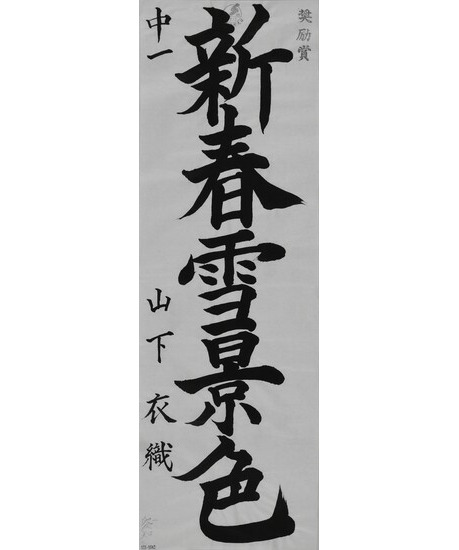 奨励賞
新春雪景色
中一 山下衣織